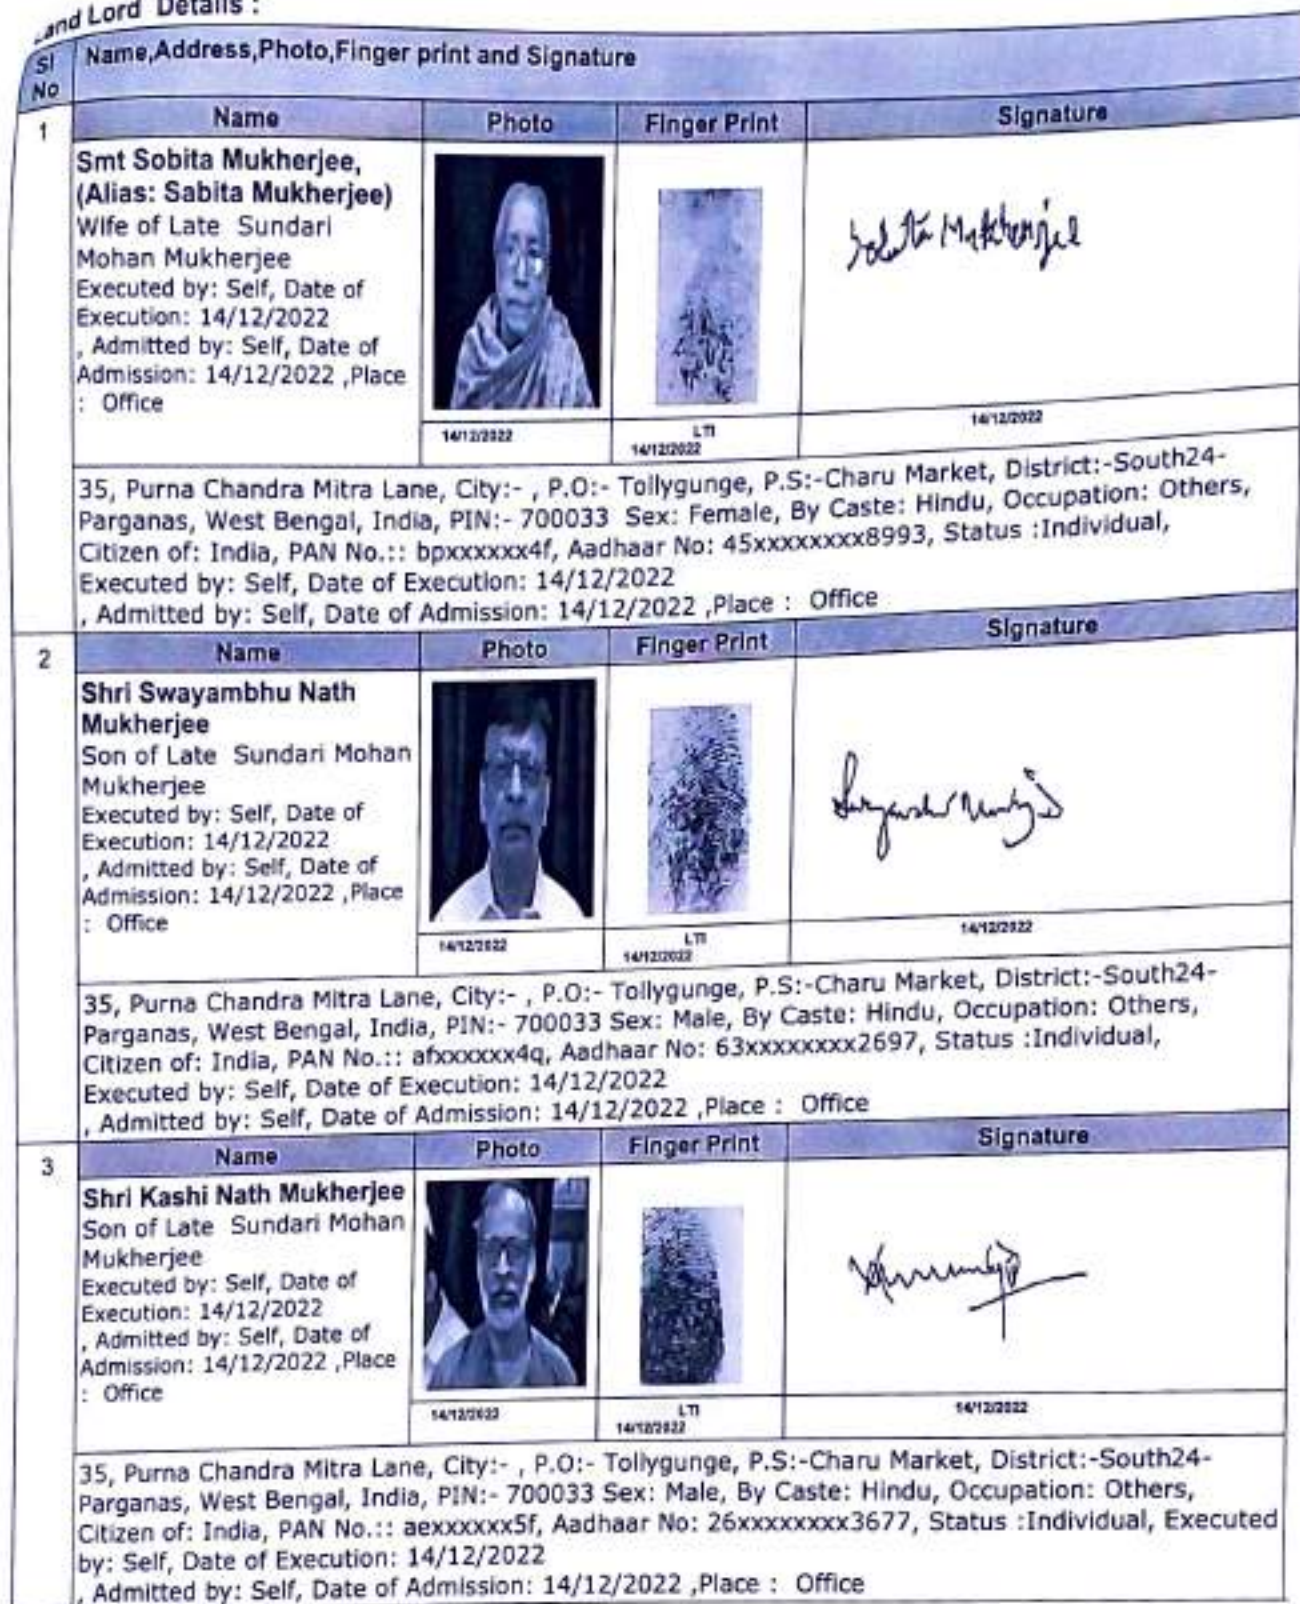 Land Lord Details :
Sl No
Name,Address,Photo,Finger print and Signature
1
Name
Photo
Finger Print
Signature
Smt Sobita Mukherjee,
(Alias: Sabita Mukherjee)
Wife of Late Sundari
Mohan Mukherjee
Executed by: Self, Date of
Execution: 14/12/2022
, Admitted by: Self, Date of
Admission: 14/12/2022 ,Place
: Office
Mukherjee
14/12/2022
LTI
14/12/2022
14/12/2022
35, Purna Chandra Mitra Lane, City:- , P.O:- Tollygunge, P.S:-Charu Market, District:-South24-
Parganas, West Bengal, India, PIN:- 700033 Sex: Female, By Caste: Hindu, Occupation: Others,
Citizen of: India, PAN No.:: bpxxxxxx4f, Aadhaar No: 45xxxxxxxx8993, Status :Individual,
Executed by: Self, Date of Execution: 14/12/2022
, Admitted by: Self, Date of Admission: 14/12/2022 ,Place : Office
2
Name
Photo
Finger Print
Signature
Shri Swayambhu Nath
Mukherjee
Son of Late Sundari Mohan
Mukherjee
Executed by: Self, Date of
Execution: 14/12/2022
, Admitted by: Self, Date of
Admission: 14/12/2022 ,Place
: Office
14/12/2022
LTI
14/12/2022
14/12/2022
35, Purna Chandra Mitra Lane, City:- , P.O:- Tollygunge, P.S:-Charu Market, District:-South24-
Parganas, West Bengal, India, PIN:- 700033 Sex: Male, By Caste: Hindu, Occupation: Others,
Citizen of: India, PAN No.:: afxxxxxx4q, Aadhaar No: 63xxxxxxxx2697, Status :Individual,
Executed by: Self, Date of Execution: 14/12/2022
, Admitted by: Self, Date of Admission: 14/12/2022 ,Place : Office
3
Name
Photo
Finger Print
Signature
Shri Kashi Nath Mukherjee
Son of Late Sundari Mohan
Mukherjee
Executed by: Self, Date of
Execution: 14/12/2022
, Admitted by: Self, Date of
Admission: 14/12/2022 ,Place
: Office
14/12/2022
LTI
14/12/2022
14/12/2022
35, Purna Chandra Mitra Lane, City:- , P.O:- Tollygunge, P.S:-Charu Market, District:-South24-
Parganas, West Bengal, India, PIN:- 700033 Sex: Male, By Caste: Hindu, Occupation: Others,
Citizen of: India, PAN No.:: aexxxxxx5f, Aadhaar No: 26xxxxxxxx3677, Status :Individual, Executed
by: Self, Date of Execution: 14/12/2022
, Admitted by: Self, Date of Admission: 14/12/2022 ,Place : Office